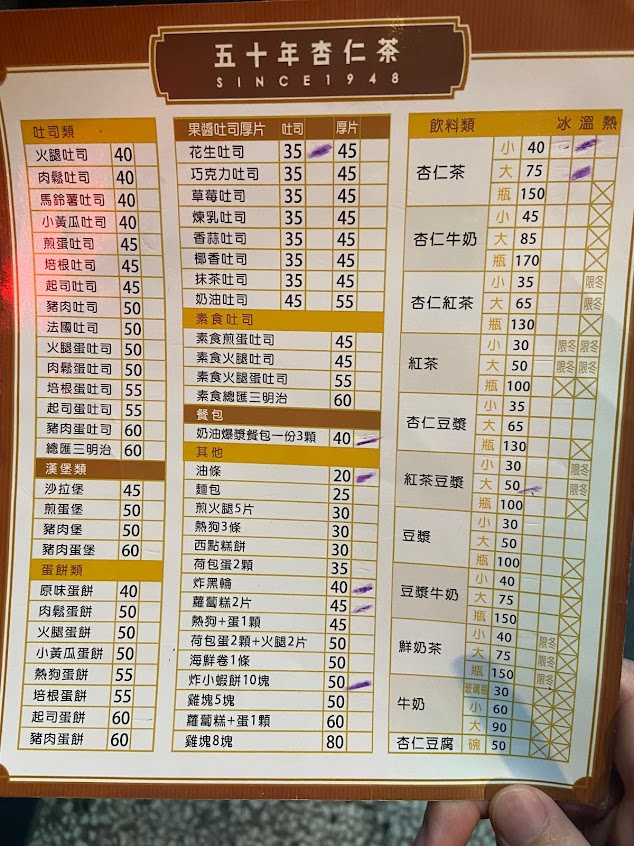 五十年杏仁茶
SINCE1948
吐司類
火腿吐司 40
肉鬆吐司 40
馬鈴薯吐司 40
小黃瓜吐司 40
煎蛋吐司 45
培根吐司 45
起司吐司 45
豬肉吐司 50
法國吐司 50
火腿蛋吐司 50
肉鬆蛋吐司 50
培根蛋吐司 55
起司蛋吐司 55
豬肉蛋吐司 60
總匯三明治 60
漢堡類
沙拉堡 45
煎蛋堡 50
豬肉堡 50
豬肉蛋堡 60
蛋餅類
原味蛋餅 40
肉鬆蛋餅 50
火腿蛋餅 50
小黃瓜蛋餅 50
熱狗蛋餅 55
培根蛋餅 55
起司蛋餅 60
豬肉蛋餅 60
果醬吐司厚片 吐司 厚片
花生吐司 35 45
巧克力吐司 35 45
草莓吐司 35 45
煉乳吐司 35 45
香蒜吐司 35 45
椰香吐司 35 45
抹茶吐司 35 45
奶油吐司 45 55
素食吐司
素食煎蛋吐司 45
素食火腿吐司 45
素食火腿蛋吐司 55
素食總匯三明治 60
餐包
奶油爆漿餐包一份3顆 40
其他
油條 20
麵包 25
煎火腿5片 30
熱狗3條 30
西點糕餅 30
荷包蛋2顆 35
炸黑輪 40
蘿蔔糕2片 45
熱狗+蛋1顆 45
荷包蛋2顆+火腿2片 50
海鮮卷1條 50
炸小蝦餅10塊 50
雞塊5塊 50
蘿蔔糕+蛋1顆 60
雞塊8塊 80
飲料類 冰 溫 熱
杏仁茶 小 40
大 75
瓶 150
杏仁牛奶 小 45
大 85
瓶 170
杏仁紅茶 小 35 限冬
大 65 限冬
瓶 130
紅茶 小 30 限冬 限冬
大 50 限冬 限冬
瓶 100
杏仁豆漿 小 35
大 65
瓶 130
紅茶豆漿 小 30 限冬
大 50 限冬
瓶 100
豆漿 小 30
大 50
瓶 100
豆漿牛奶 小 40
大 75
瓶 150
鮮奶茶 小 40 限冬
大 75 限冬
瓶 150 限冬
牛奶 玻璃瓶 30
小 60
大 90
杏仁豆腐 碗 50